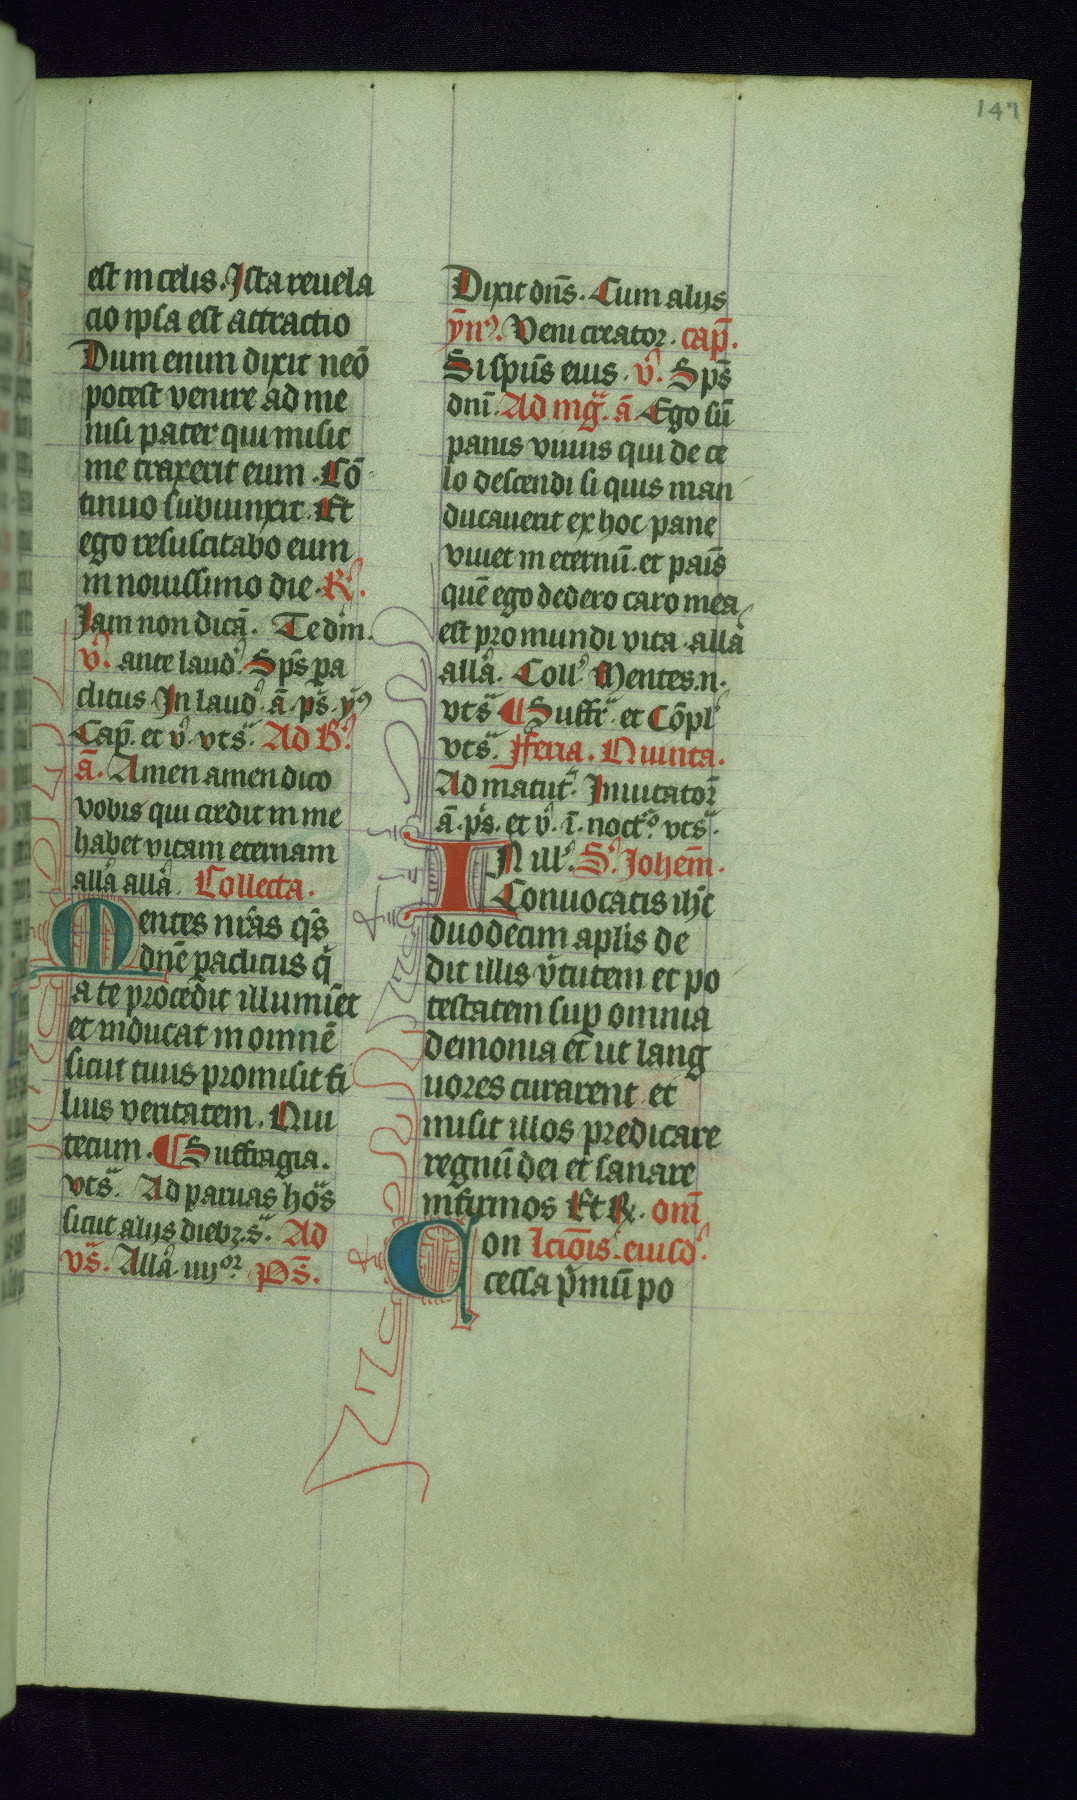 147
est in celis. Ista reuela
cio ipsa est attractio
Dum enim dixit neō
potest venire ad me
nisi pater qui misit
me traxerit eum. Cō
tinuo subiunxit. Et
ego resuscitabo eum
in nouissimo die. R̃.
Iam non dicā. Te dm̄.
v̾. ante laud̾. Sps̄ pa
clitus In laud̾. ā. ps̄. yꝰ
Cap̄. et v̾. vts̄. Ad B̾.
ā. Amen amen dico
vobis qui credit in me
habet vitam eternam
alla alla. Collecta.
Mentes nr̄as qs̄
dn̄e paclitus q̄
a te procedit illuminet
et inducat in omnē
sicut tuus promisit fi
lius veritatem. Qui
tecum. ¶ Suffragia.
vts̄. Ad paruas hōs
sicut alijs diebꝫ. s̄. Ad
vs̄. Alla. iiijor. Ps̄.
Dixit dn̄s. Cum alijs
ȳnꝰ. Veni creator. cap̄.
Si spūs eius. v̾. Sps̄
dnī. Ad mḡ. ā. Ego sū
panis viuus qui de ce
lo descendi si quis man
ducauerit ex hoc pane
viuet in eternū. et panis̄
quē ego dedero caro mea
est pro mundi vita. alla
alla. Coll̾ Mentes. n.
vts̄ ¶ Suffr̄. et Cōpl̾
vts̄. Fferia. Quinta.
Ad matut̄. Inuitator̄
ā. ps̄. et v̾. ī. noct̾o vts̄.
IN ill̾. S̾. Johēm.
Conuocatis ihc̄
duodecim aplis de
dit illis v̾tutem et po
testatem sup omnia
demonia et ut lang
uores curarent et
misit illos predicare
regnū dei et sanare
infirmos Et R̃. om̄
Qon lcīois. eiusd̾.
cessa p̄mū po